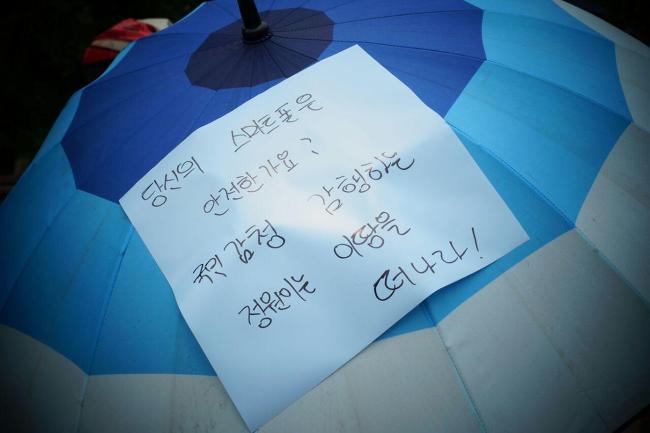 당신의 스마트폰은
안전한가요?
국민감청 감행하는
정원이는 이땅을
떠나라!